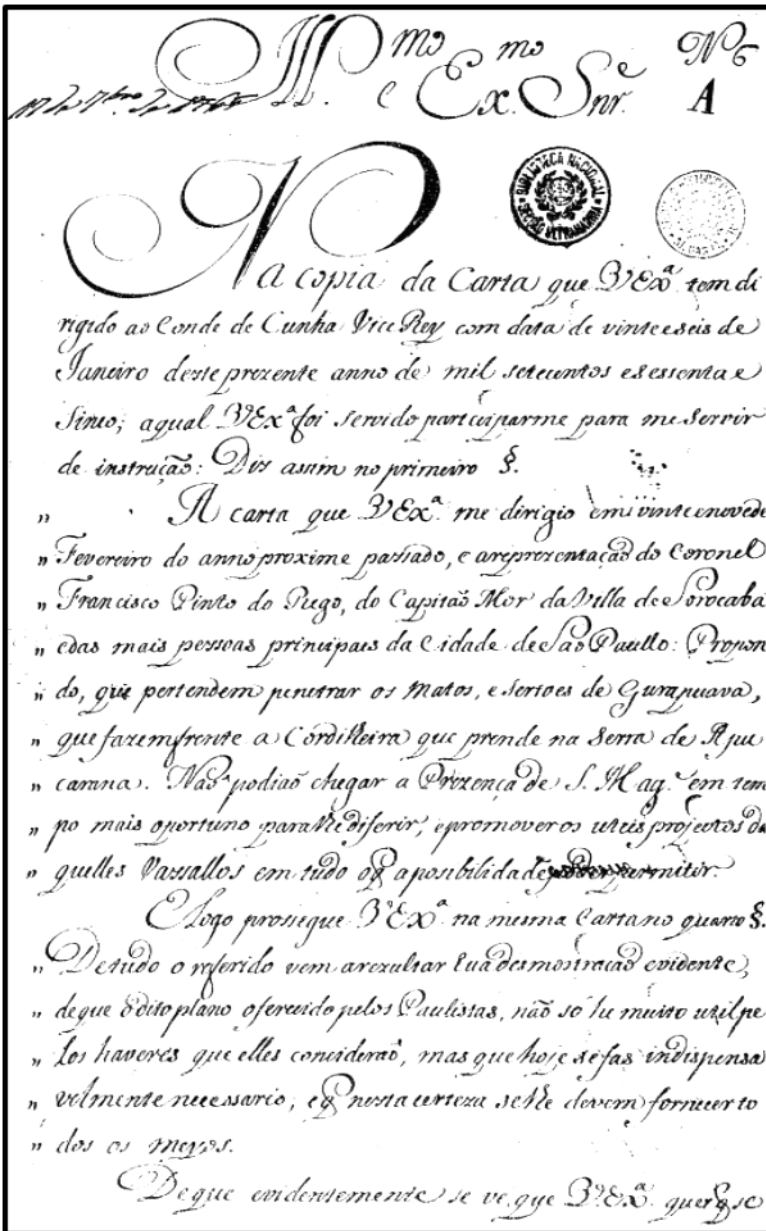 Ill.mo e Ex.mo Snr.e N.o 6
A
BIBLIOTECA NACIONAL
Na copia da Carta que V Ex.ª tem di
rigido ao Conde de Cunha Vice Rey com data de vinte e seis de
Janeiro deste prezente anno de mil setecentos e sessenta e
Sinco; aqual V Ex.ª foi servido participarme para me servir
de instrução: Diz assim no primeiro §.
" A carta que V Ex.ª me dirigio em vinte enovede
" Fevereiro do anno proxime passado, e areprezentação do Coronel
" Francisco Pinto do Rego, do Capitaõ Mor da Villa de Sorocaba
" edas mais pessoas principaes da Cidade de Saõ Paullo: Propon
" do, que pertendem penetrar os Matos, e sertoes de Gurapuava,
" que fazem frente a Cordilheira que prende na Serra de Apu
" carana. Naõ podiaõ chegar a Prezença de S. Mag.e em tem
" po mais oportuno para lhe diferir, epromover os uteis projectos da
" quelles Vassallos em tudo oq̃ aposibilidade permitir.
E logo prossegue V Ex.ª na mesma Carta no quarto §.
" De tudo o referido vem arezultar hua desmostracaõ evidente,
" deque o dito plano oferecido pelos Paulistas, não só he muito util pe
" los haveres que elles conciderão, mas que hoje se fas indispensa
" velmente necessario; eq̃ nesta certeza se lhe devem fornecer to
" dos os meyos.
Deque evidentemente se ve, que V Ex.ª quer q̃ se